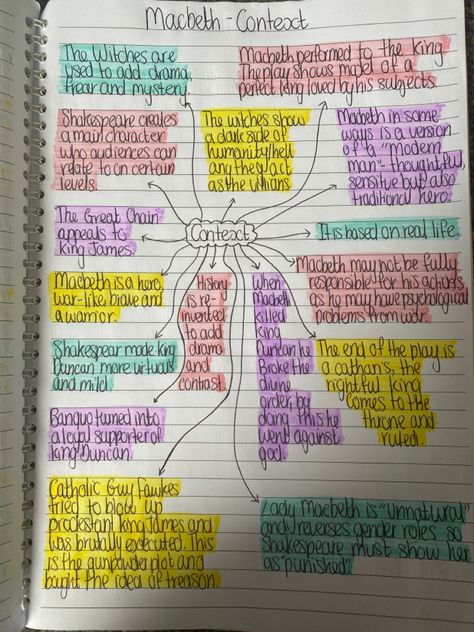 Macbeth - Context
The Witches are
used to add drama,
fear and mystery
Macbeth performed to the king
The play shows model of a
perfect king loved by his subjects.
Shakespeare creates
a main character
who audiences can
relate to on certain
levels.
The witches show
a dark side of
humanity/hell
any they act
as the villians.
Macbeth in some
ways is a version
of a "modern
man"- thoughtful,
sensitive but also
traditional hero.
The Great Chain
appeals to
King James.
Context
It is based on real life.
Macbeth is a hero,
war-like brave and
a warrior.
History
is re-
invented
to add
drama
and
contrast.
When
Macbeth
killed
King
Duncan he
Broke the
divine
order, by
doing this he
went against
god.
Macbeth may not be fully
responsible for his actions
as he may have psychological
problems from war.
Shakespear made king
Duncan more virtuous
and mild.
The end of the play is
a catharis, the
rightful king
comes to the
throne and
ruled.
Banquo turned into
a loyal supporter of
king Duncan.
Catholic Guy Fawkes
tried to blow up
prodestant king James and
was brutally executed. This
is the gunpowder plot and
bought the idea of treason.
Lady Macbeth is "unnatural"
and reverses gender roles so
Shakespeare must show her
as "punished"